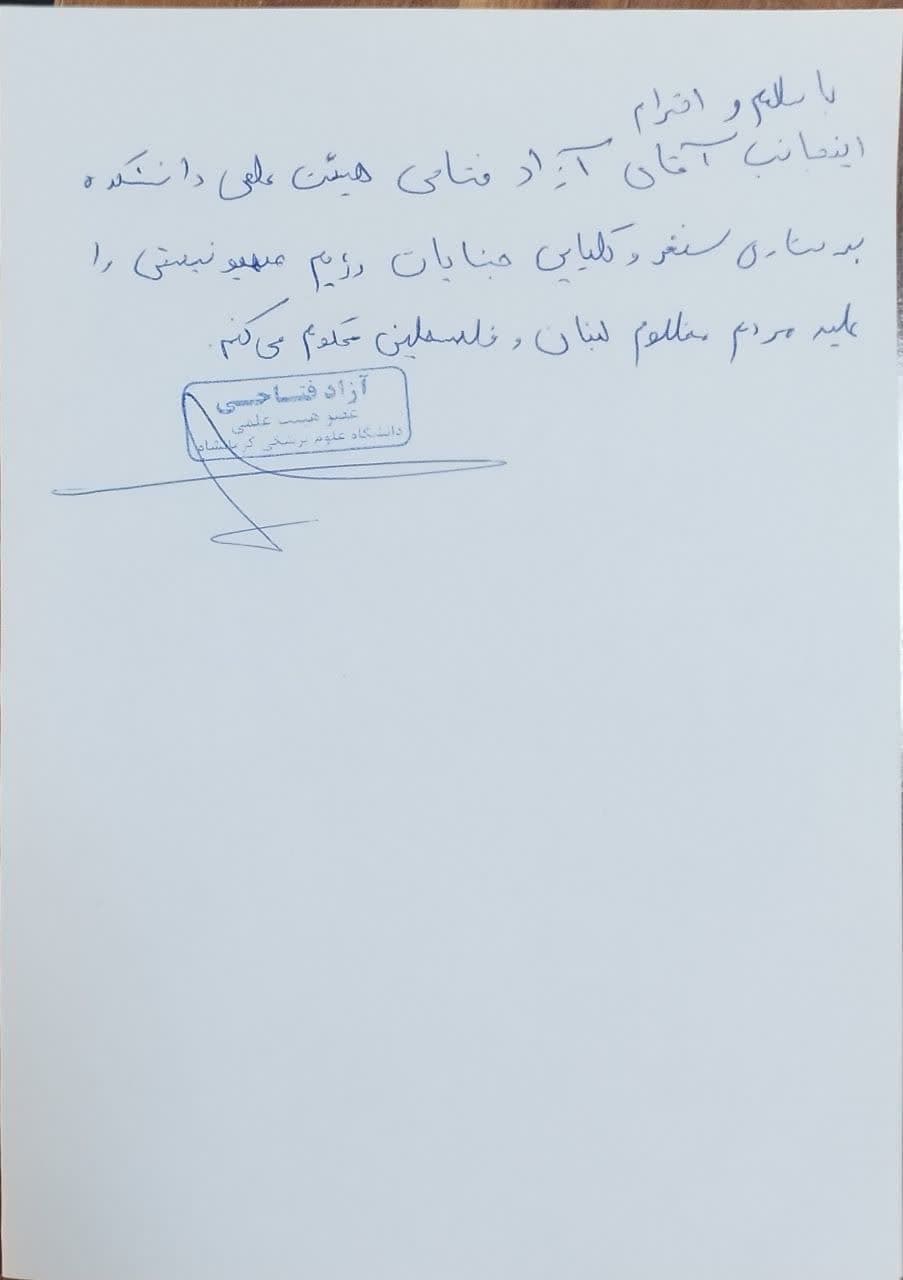 با سلام و احترام
اینجانب آقای آزاد فتاحی هیئت علمی دانشکده
پرستاری سنقر و کلیایی جنایات رژیم صهیونیستی را
علیه مردم مظلوم لبنان و فلسطین محکوم می‌کنم.
آزاد فتاحی
عضو هیئت علمی
دانشگاه علوم پزشکی کرمانشاه